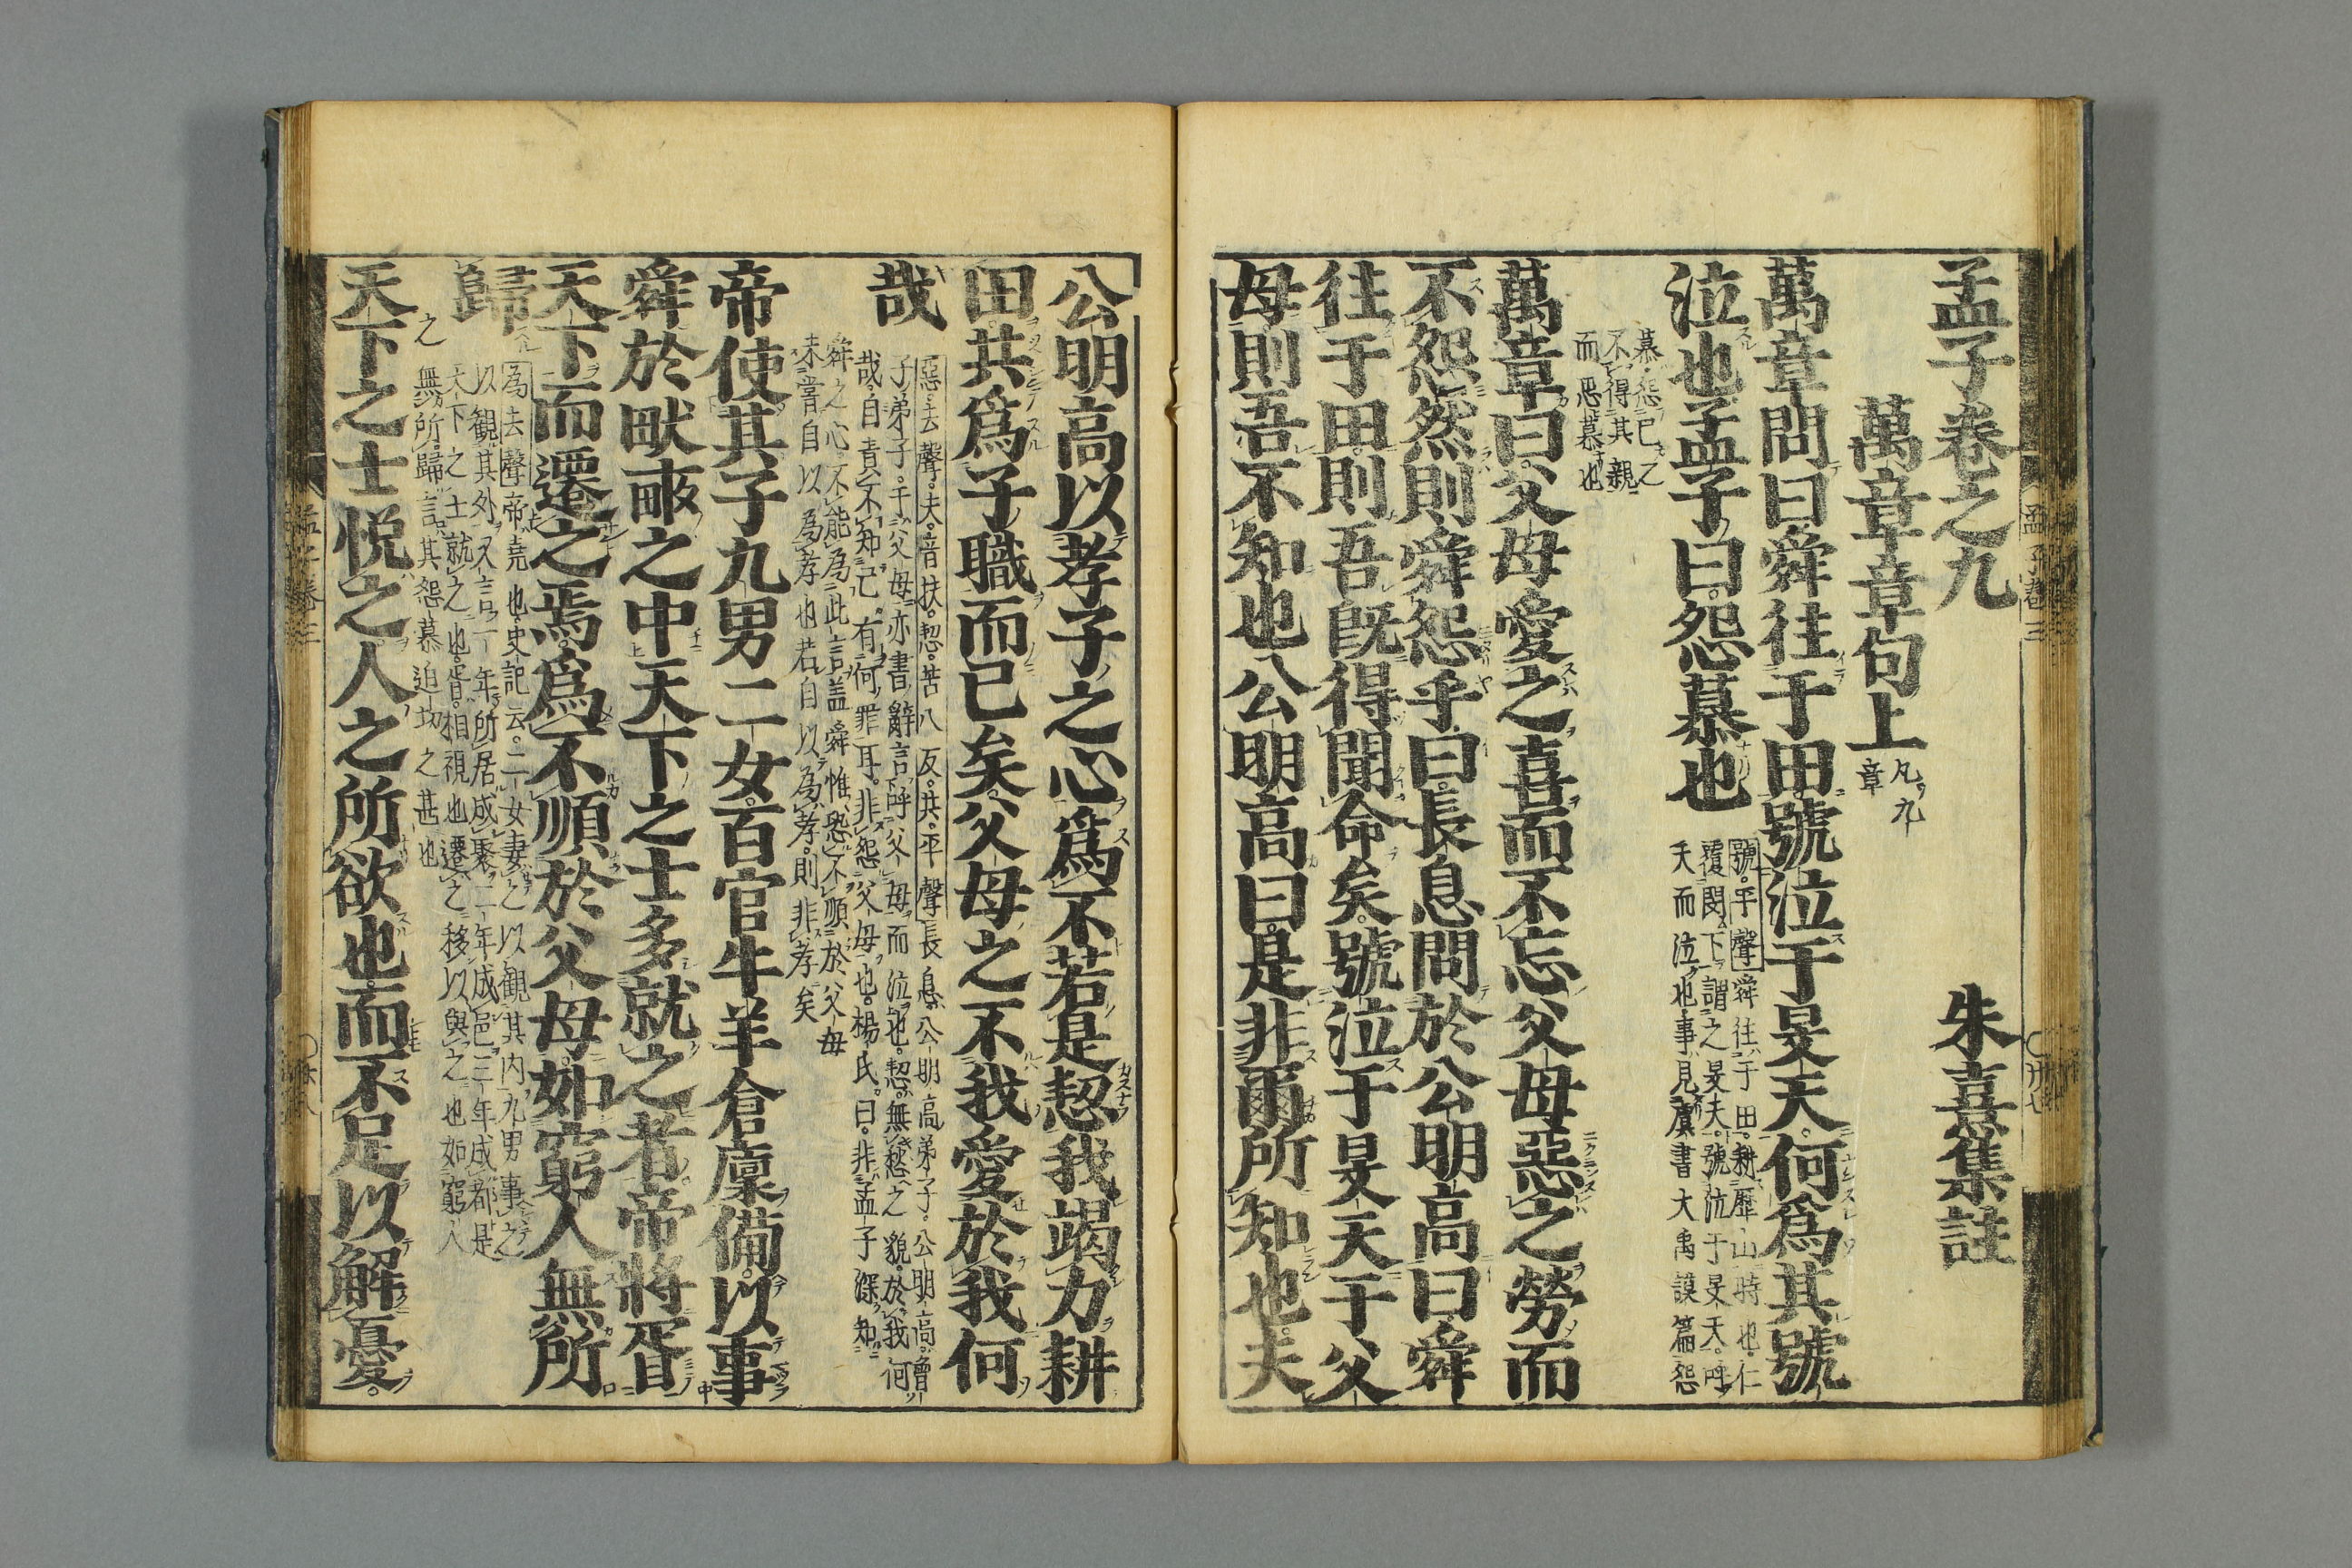 孟子卷之九
朱熹集註
萬章章句上
凡九
章
萬章問曰舜往于田號泣于旻天何爲其號
泣也孟子曰怨慕也
號平聲舜往于田耕歷山時也仁
覆閔下謂之旻天號泣于旻天呼
天而泣也事見虞書大禹謨篇怨
慕怨己之
不得其親
而思慕也
萬章曰父母愛之喜而不忘父母惡之勞而
不怨然則舜怨乎曰長息問於公明高曰舜
往于田則吾既得聞命矣號泣于旻天于父
母則吾不知也公明高曰是非爾所知也夫
公明高以孝子之心爲不若是恝我竭力耕
田共爲子職而已矣父母之不我愛於我何
哉
惡去聲夫音扶恝苦八反共平聲長息公明高弟子公明高曾
子弟子于父母亦書辭言呼父母而泣也恝無愁之貌於我何
哉自責不知己有何罪耳非怨父母也楊氏曰非孟子深知
舜之心不能為此言盖舜惟恐不順於父母
未嘗自以為孝也若自以為孝則非孝矣
帝使其子九男二女百官牛羊倉廩備以事
舜於畎畝之中天下之士多就之者帝將胥
天下而遷之焉爲不順於父母如窮人無所
歸
為去聲帝堯也史記云二女妻之以観其内九男事之
以観其外又言一年所居成聚二年成邑三年成都是
天下之士就之也胥相視也遷之移以與之也如窮人
之
無所歸言其怨慕迫切之甚也
天下之士悅之人之所欲也而不足以解憂